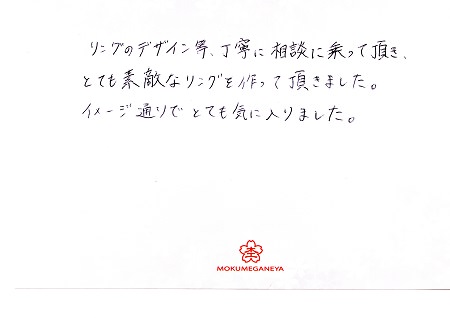 リングのデザイン等、丁寧に相談に乗って頂き、
とても素敵なリングを作って頂きました。
イメージ通りでとても気に入りました。
MOKUMEGANEYA